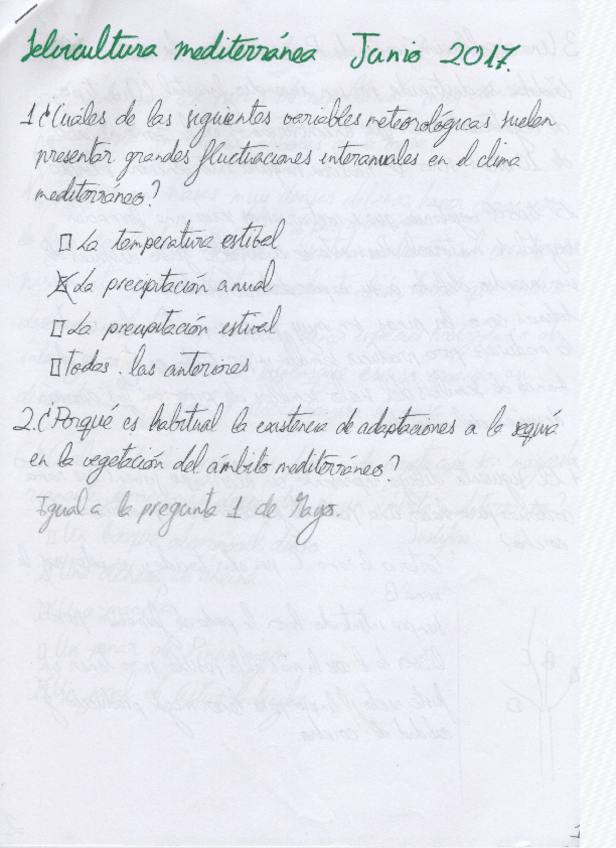 Selvicultura mediterránea Junio 2017.
1.¿Cuáles de las siguientes variables meteorológicas suelen
presentar grandes fluctuaciones interanuales en el clima
mediterráneo?
La temperatura estival
La precipitación anual
La precipitación estival
Todas las anteriores
2.¿Porqué es habitual la existencia de adaptaciones a la sequía
en la vegetación del ámbito mediterráneo?
Igual a la pregunta 1 de Mayo.